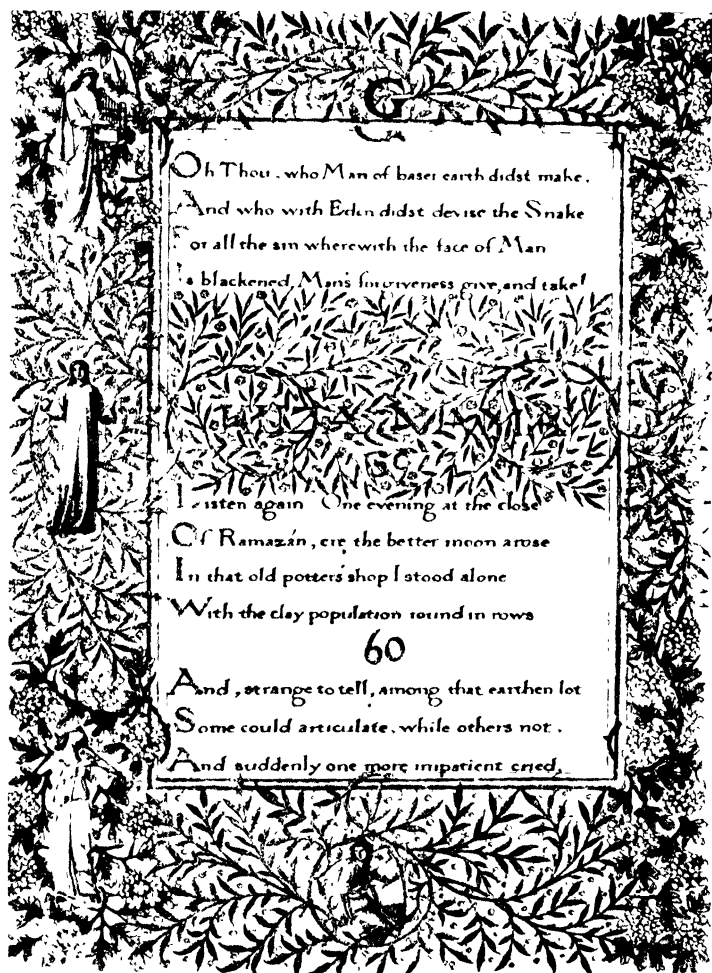 Oh Thou, who Man of baser earth didst make,
And who with Eden didst devise the Snake
For all the sin wherewith the face of Man
Is blackened, Man's forgiveness give, and take!
KUZA NAMA
59
Listen again One evening at the close
Of Ramazán, ere the better moon arose
In that old potter's shop I stood alone
With the clay population round in rows
60
And, strange to tell, among that earthen lot
Some could articulate, while others not.
And suddenly one more impatient cried,